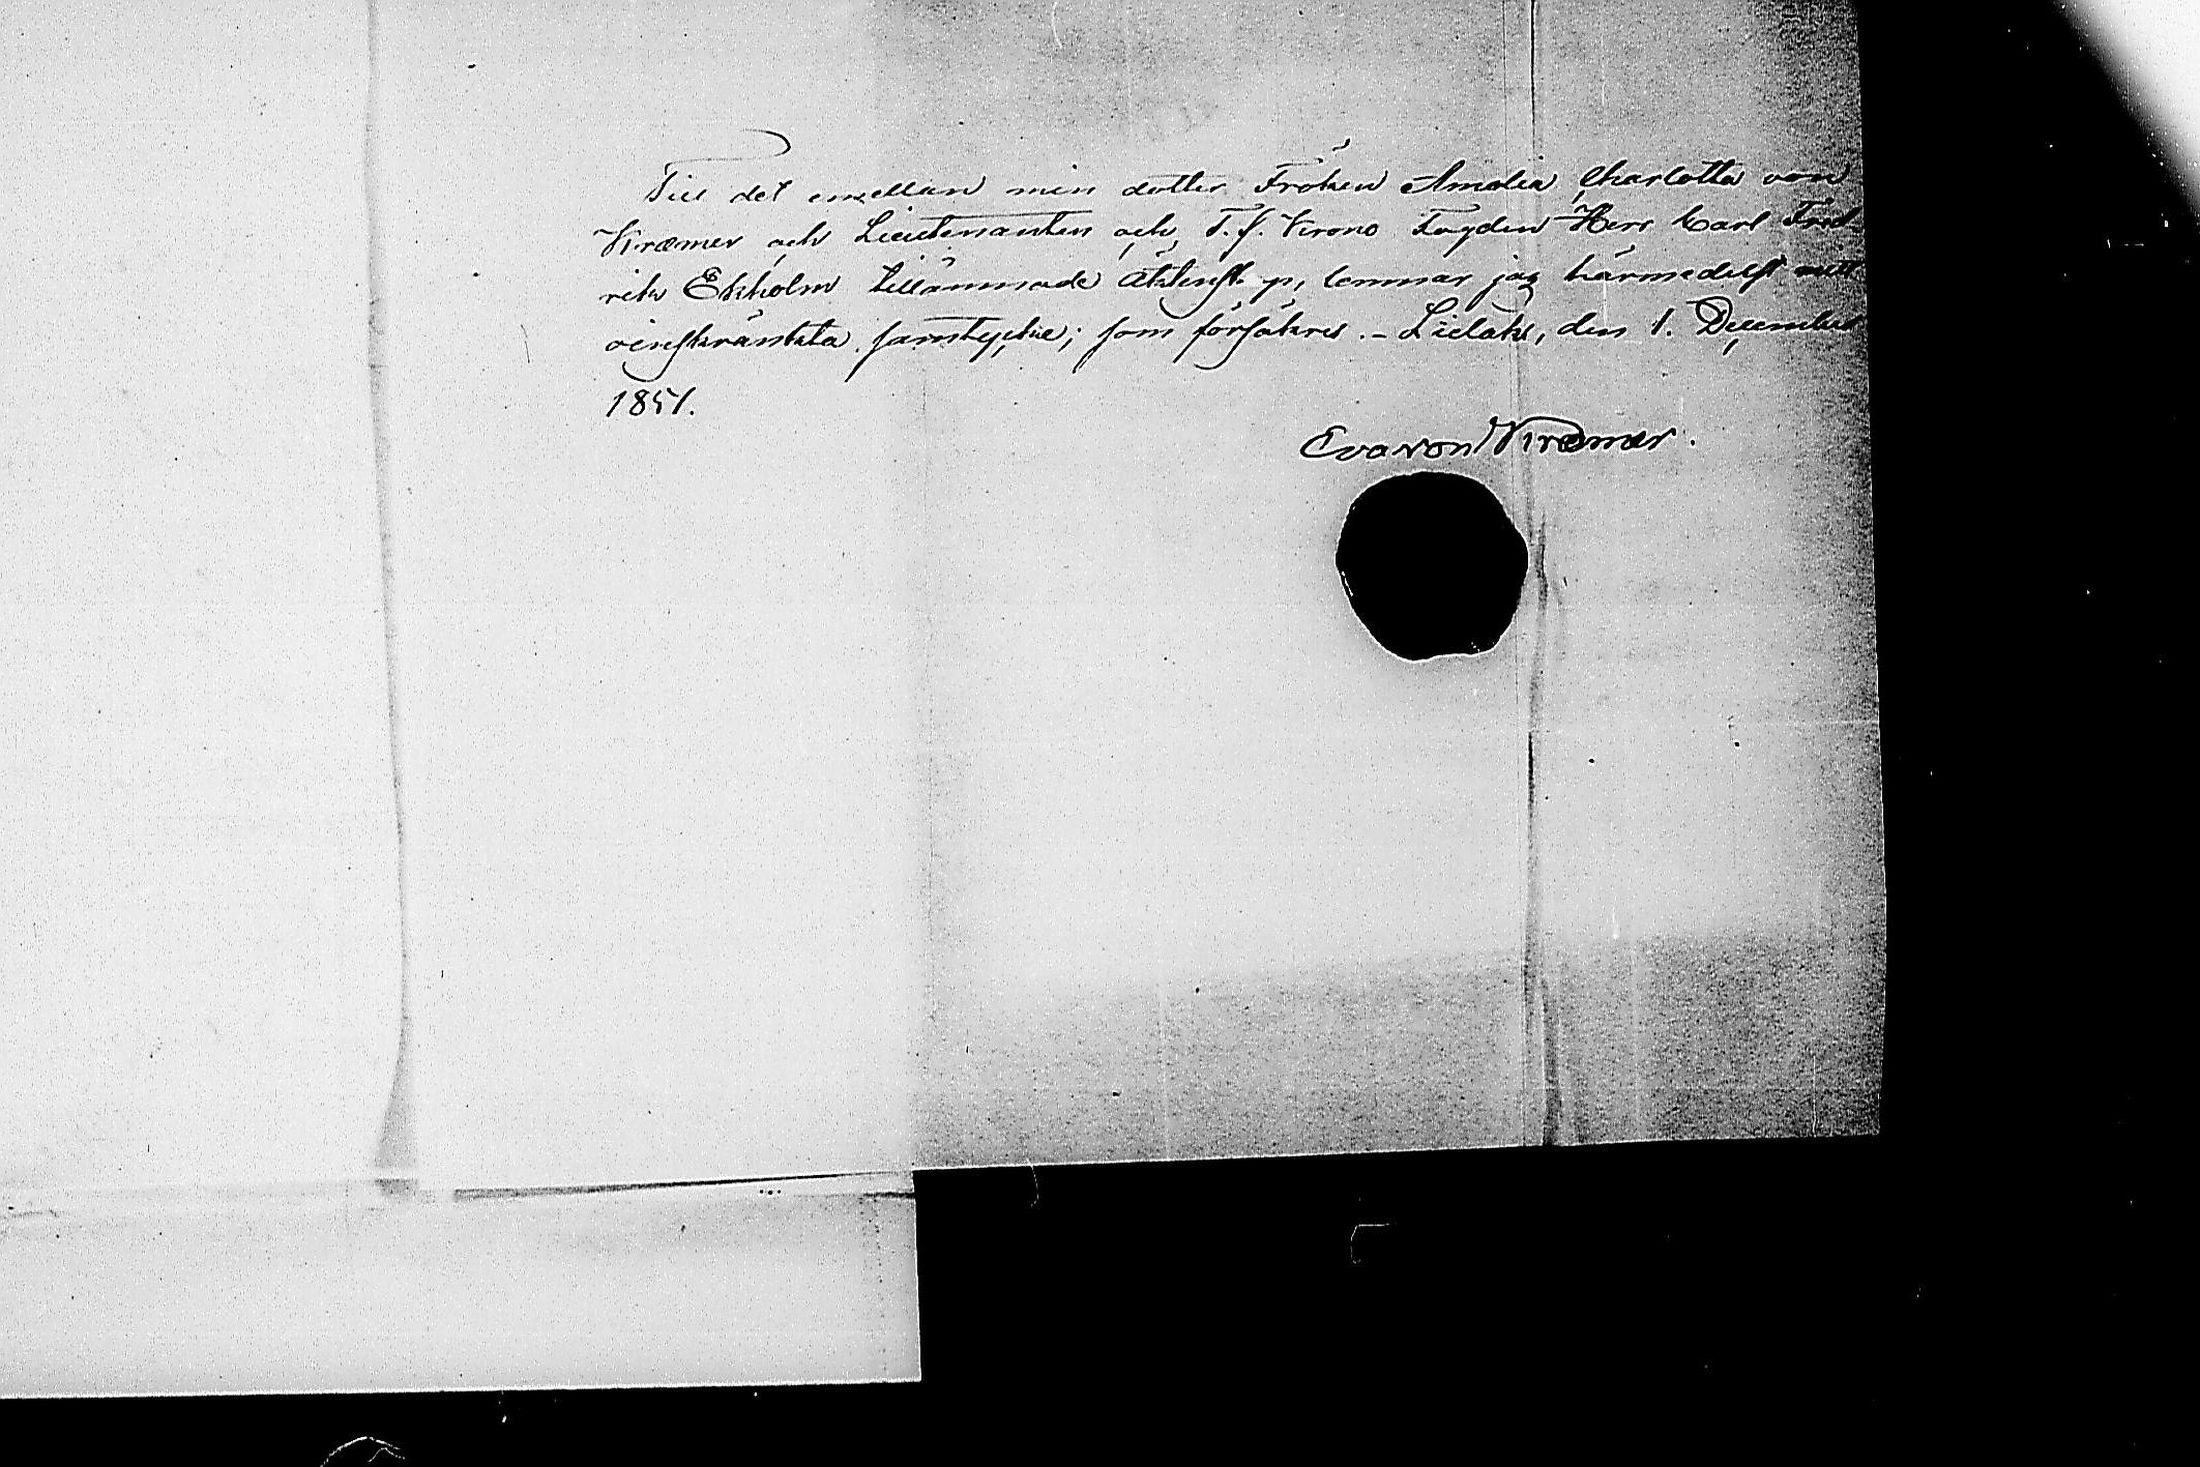 Till det emellan min dotter Fröken Amalia Charlotta von
Kræmer och Lieutenanten och T.f. Krono Fogden Herr Carl Fred-
rik Ekholm tillämnade äktenskap, lemnar jag härmedelst mitt
oinskränkta samtycke; som försäkras. - Lielaks, den 1. December
1851.
Eva von Kræmer.